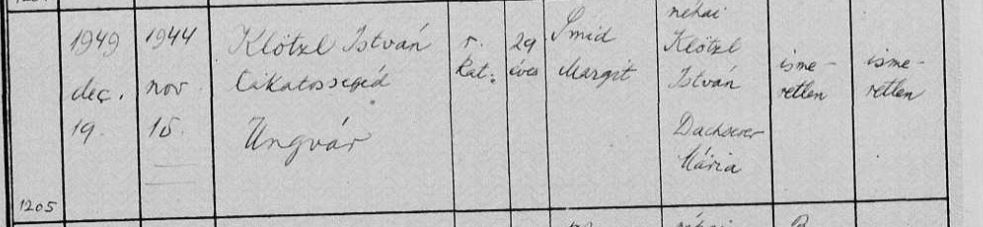 1949
dec.
19.
1944
nov.
15.
Klötzl István
lakatossegéd
Ungvár
r.
kat.
29
éves
Smid
Margit
néhai
Klötzl
István
Mária
isme-
retlen
isme-
retlen
1205